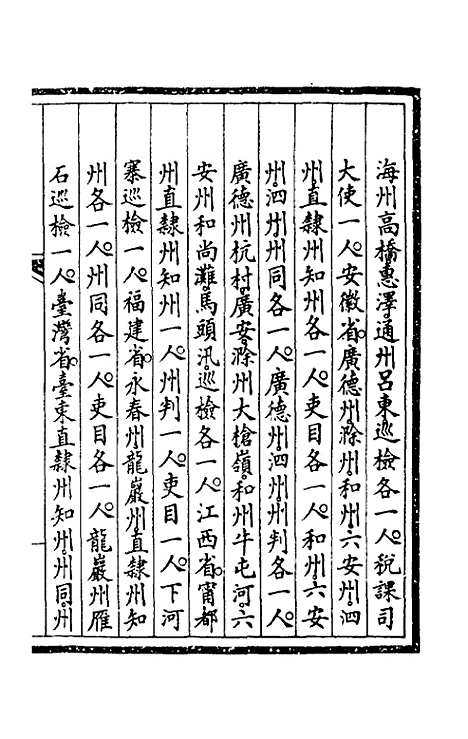 海州高橋惠澤通州吕東巡檢各一人。稅課司
大使一人。安徽省。廣德州。滁州和州。六安州。泗
州。直隸州知州各一人。吏目各一人。和州。六安
州。泗州州同各一人。廣德州。泗州。州判各一人。
廣德州杭村。廣安。滁州大槍嶺。和州牛屯河。六
安州和尚灘。馬頭汛。巡檢各一人。江西省。甯都
州直隸州知州一人。州判一人。吏目一人。下河
寨巡檢一人。福建省。永春州龍巖州直隸州知
州各一人。州同各一人。吏目各一人。龍巖州雁
石巡檢一人。臺灣省。臺東直隸州知州。州同。州